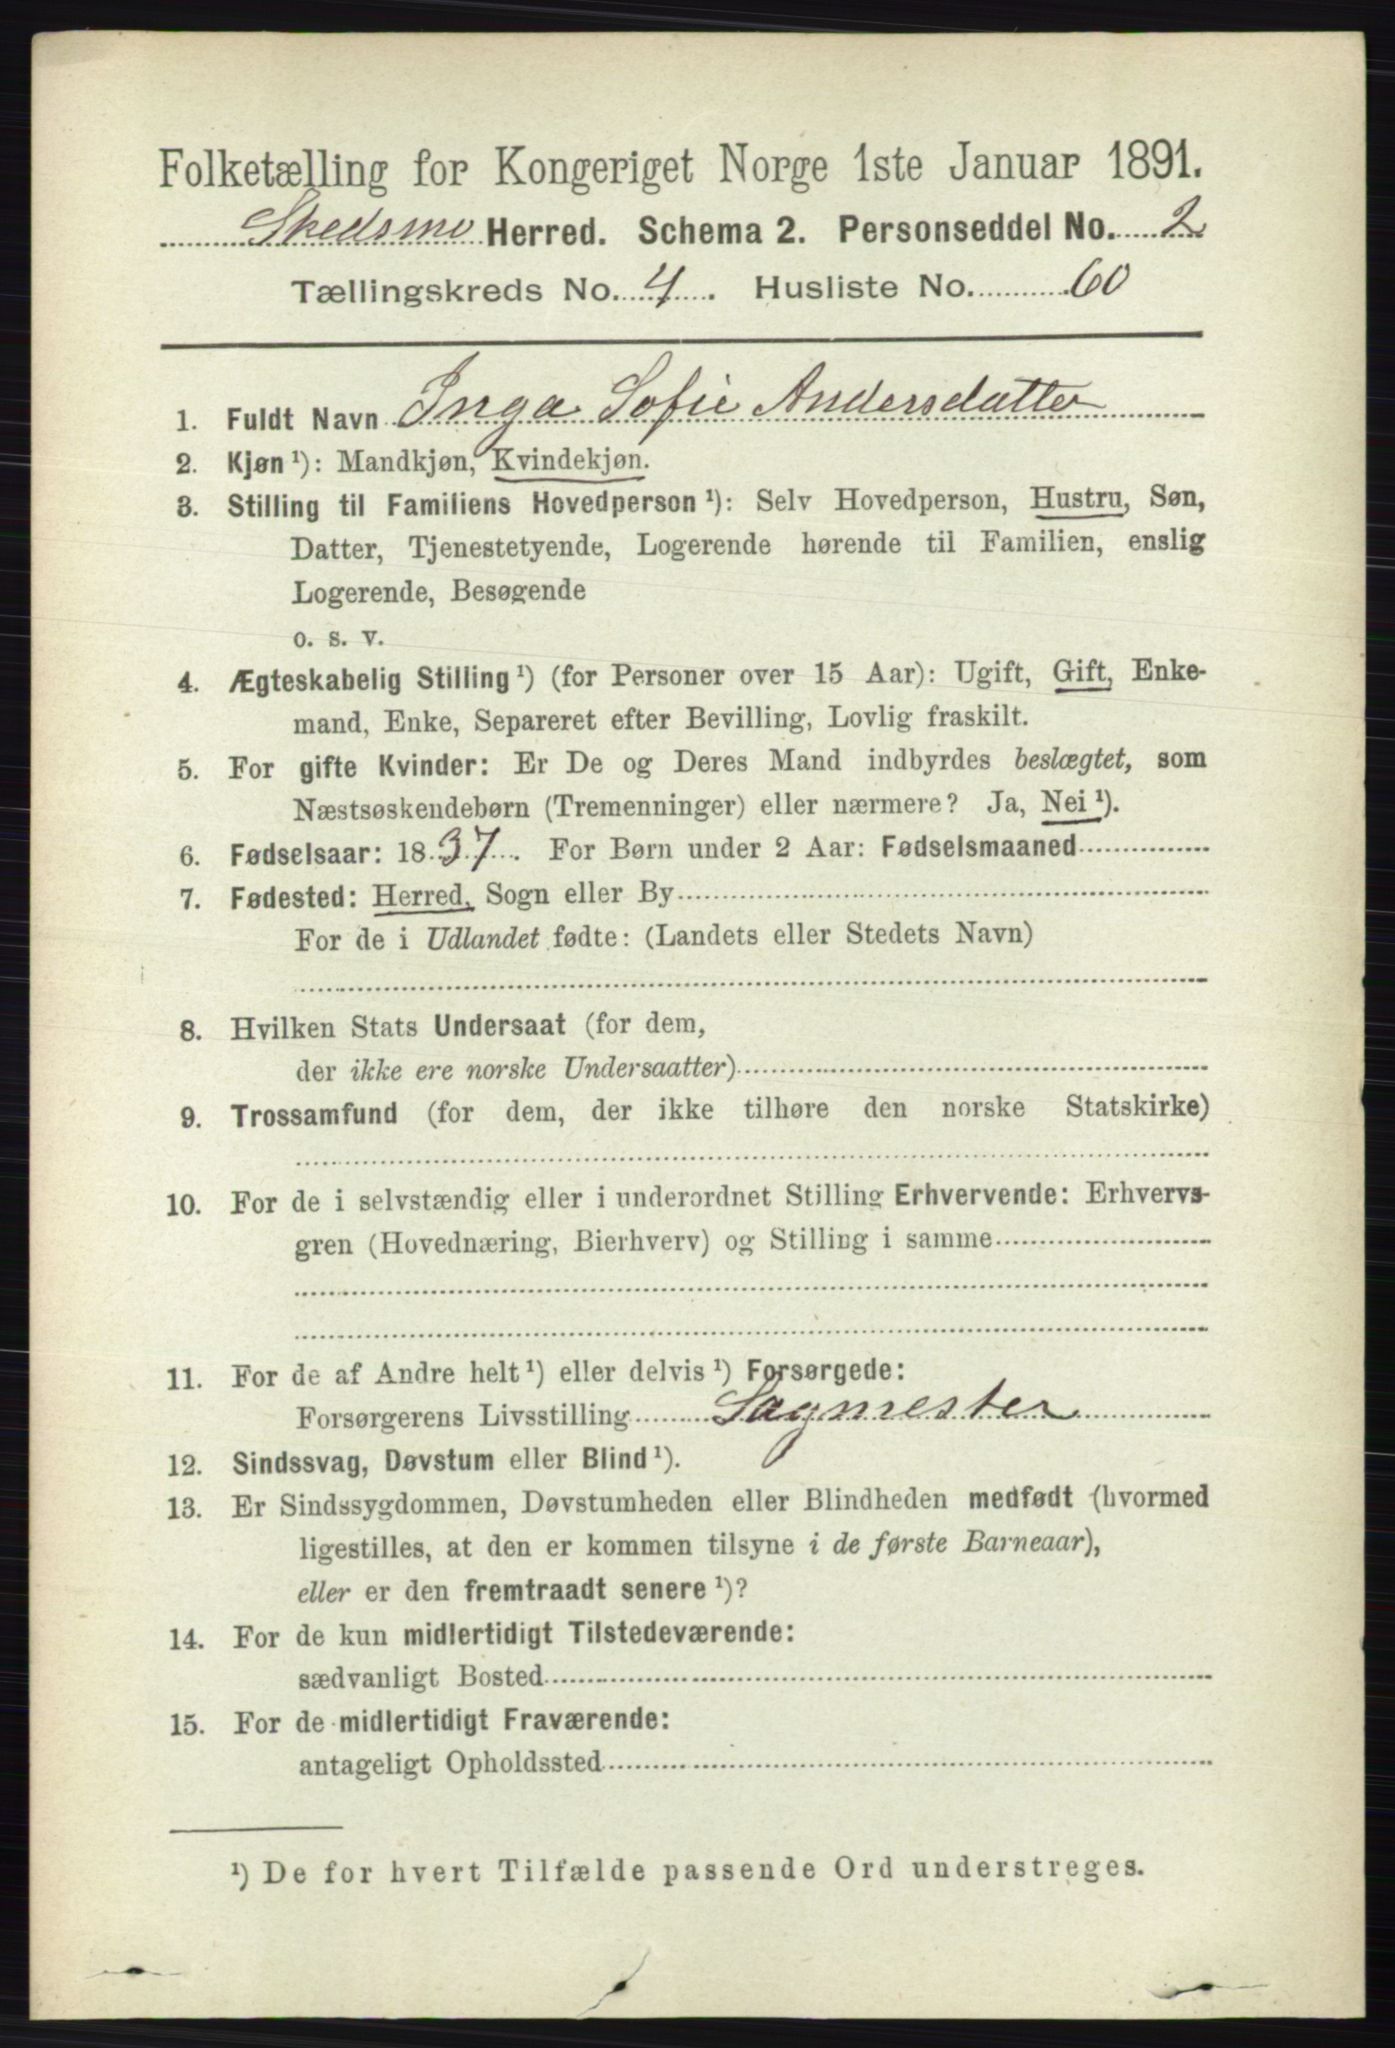 Folketælling for Kongeriget Norge 1ste Januar 1891.
Skedsmo Herred. Schema 2. Personseddel No. 2
Tællingskreds No. 4. Husliste No. 60
1. Fuldt Navn Inga Sofie Andersdatter
2. Kjøn ¹): Mandkjøn, Kvindekjøn.
3. Stilling til Familiens Hovedperson ¹): Selv Hovedperson, Hustru, Søn,
Datter, Tjenestetyende, Logerende hørende til Familien, enslig
Logerende, Besøgende
o. s. v.
4. Ægteskabelig Stilling ¹) (for Personer over 15 Aar): Ugift, Gift, Enke-
mand, Enke, Separeret efter Bevilling, Lovlig fraskilt.
5. For gifte Kvinder: Er De og Deres Mand indbyrdes beslægtet, som
Næstsøskendebørn (Tremenninger) eller nærmere? Ja, Nei ¹).
6. Fødselsaar: 1837. For Børn under 2 Aar: Fødselsmaaned
7. Fødested: Herred, Sogn eller By
For de i Udlandet fødte: (Landets eller Stedets Navn)
8. Hvilken Stats Undersaat (for dem,
der ikke ere norske Undersaatter)
9. Trossamfund (for dem, der ikke tilhøre den norske Statskirke)
10. For de i selvstændig eller i underordnet Stilling Erhvervende: Erhvervs-
gren (Hovednæring, Bierhverv) og Stilling i samme
11. For de af Andre helt ¹) eller delvis ¹) Forsørgede:
Forsørgerens Livsstilling Sagmester
12. Sindssvag, Døvstum eller Blind ¹).
13. Er Sindssygdommen, Døvstumheden eller Blindheden medfødt (hvormed
ligestilles, at den er kommen tilsyne i de første Barneaar),
eller er den fremtraadt senere ¹)?
14. For de kun midlertidigt Tilstedeværende:
sædvanligt Bosted
15. For de midlertidigt Fraværende:
antageligt Opholdssted
¹) De for hvert Tilfælde passende Ord understreges.